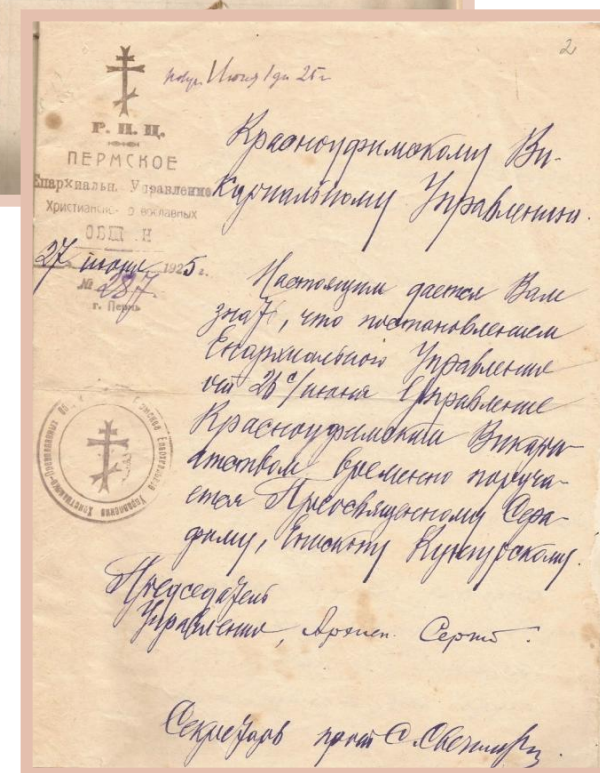 2
Июня 1 дн 25 г
Р. П. Ц.
ПЕРМСКОЕ
Епархиальн. Управление
Христианско-
ОБЩ Н
27 июня 1925 г.
№ 287.
г. Пермь
Красноуфимскому Ви-
кариальному Управлению.
Настоящим дается Вам
знать, что постановлением
Епархиального Управления
от 26 с/июня Управление
Красноуфимским Викари-
атством временно поруча-
ется Преосвященному Сера-
фиму, Епископу Кунгурскому.
Председатель
Управления, Архиеп. Сергий.
Секретарь прот С.